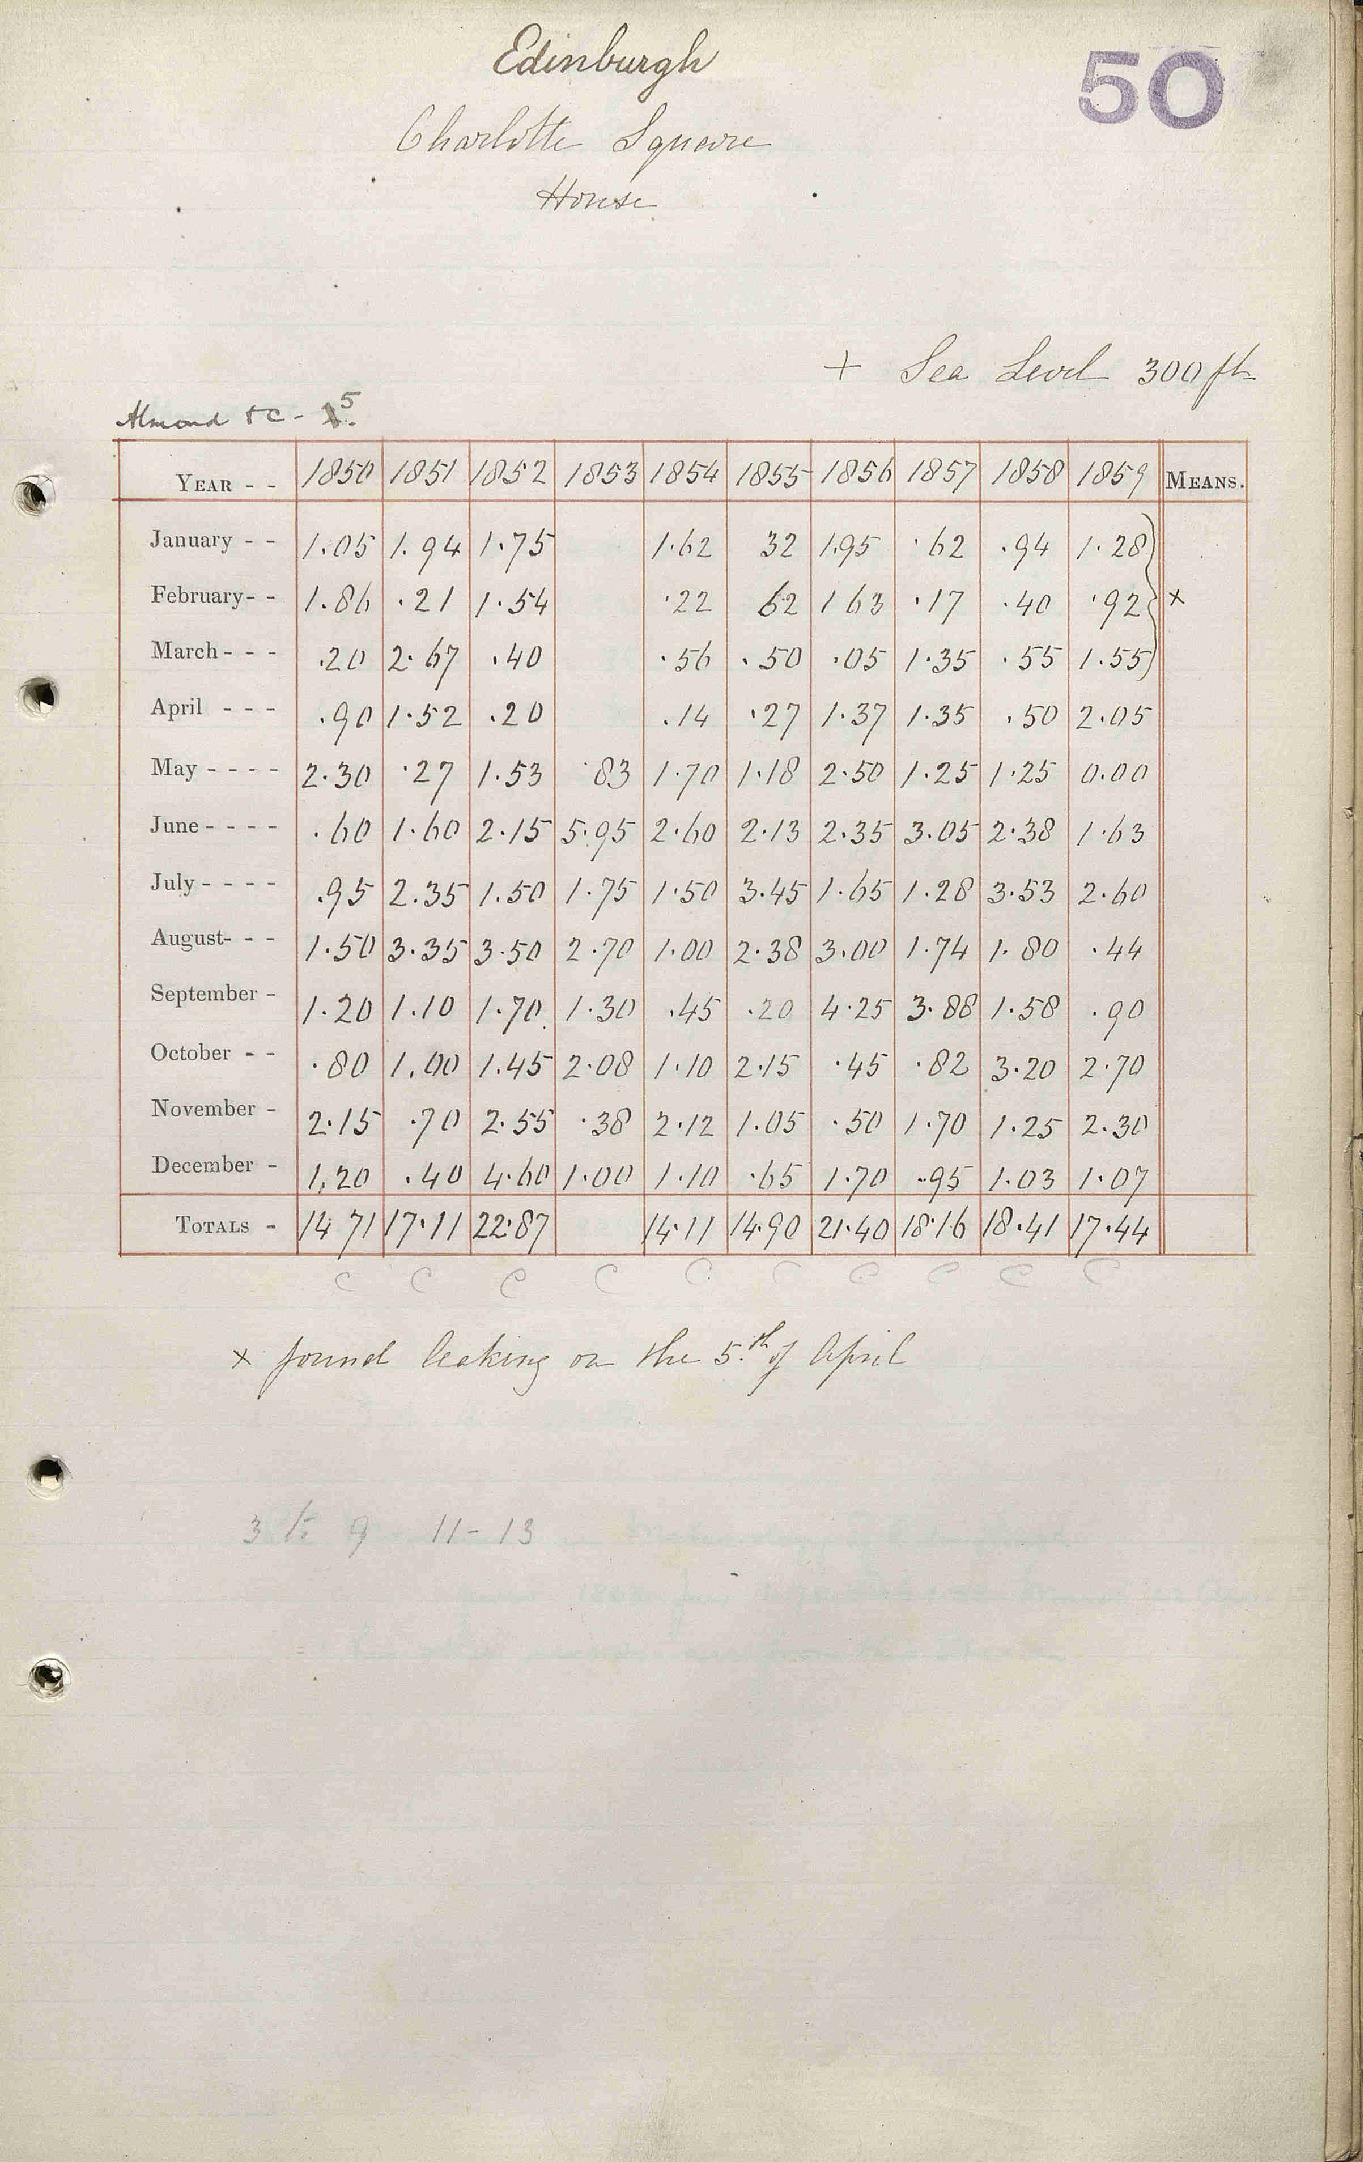 Edinburgh
50
Charlotte Square
House
+ Sea Level 300 ft
Almond & C - 5.
YEAR - - 1850 1851 1852 1853 1854 1855 1856 1857 1858 1859 MEANS.
January - - 1.05 1.94 1.75 1.62 32 1.95 .62 .94 1.28
February - - 1.86 .21 1.54 .22 62 1 63 .17 .40 .92 x
March - - - .20 2.67 .40 .56 .50 .05 1.35 .55 1.55
April - - - .90 1.52 .20 .14 .27 1.37 1.35 .50 2.05
May - - - - 2.30 .27 1.53 .83 1.70 1.18 2.50 1.25 1.25 0.00
June - - - - .60 1.60 2.15 5.95 2.60 2.13 2.35 3.05 2.38 1.63
July - - - - .95 2.35 1.50 1.75 1.50 3.45 1.65 1.28 3.53 2.60
August - - - 1.50 3.35 3.50 2.70 1.00 2.38 3.00 1.74 1.80 .44
September - 1.20 1.10 1.70 1.30 .45 .20 4.25 3.88 1.58 .90
October - - .80 1.00 1.45 2.08 1.10 2.15 .45 .82 3.20 2.70
November - 2.15 .70 2.55 .38 2.12 1.05 .50 1.70 1.25 2.30
December - 1.20 .40 4.60 1.00 1.10 .65 1.70 .95 1.03 1.07
TOTALS - 14 71 17.11 22.87 14.11 14.90 21.40 18.16 18.41 17.44
C C C C C C C C C C
x found leaking on the 5.th of April
3 to 9 11-13